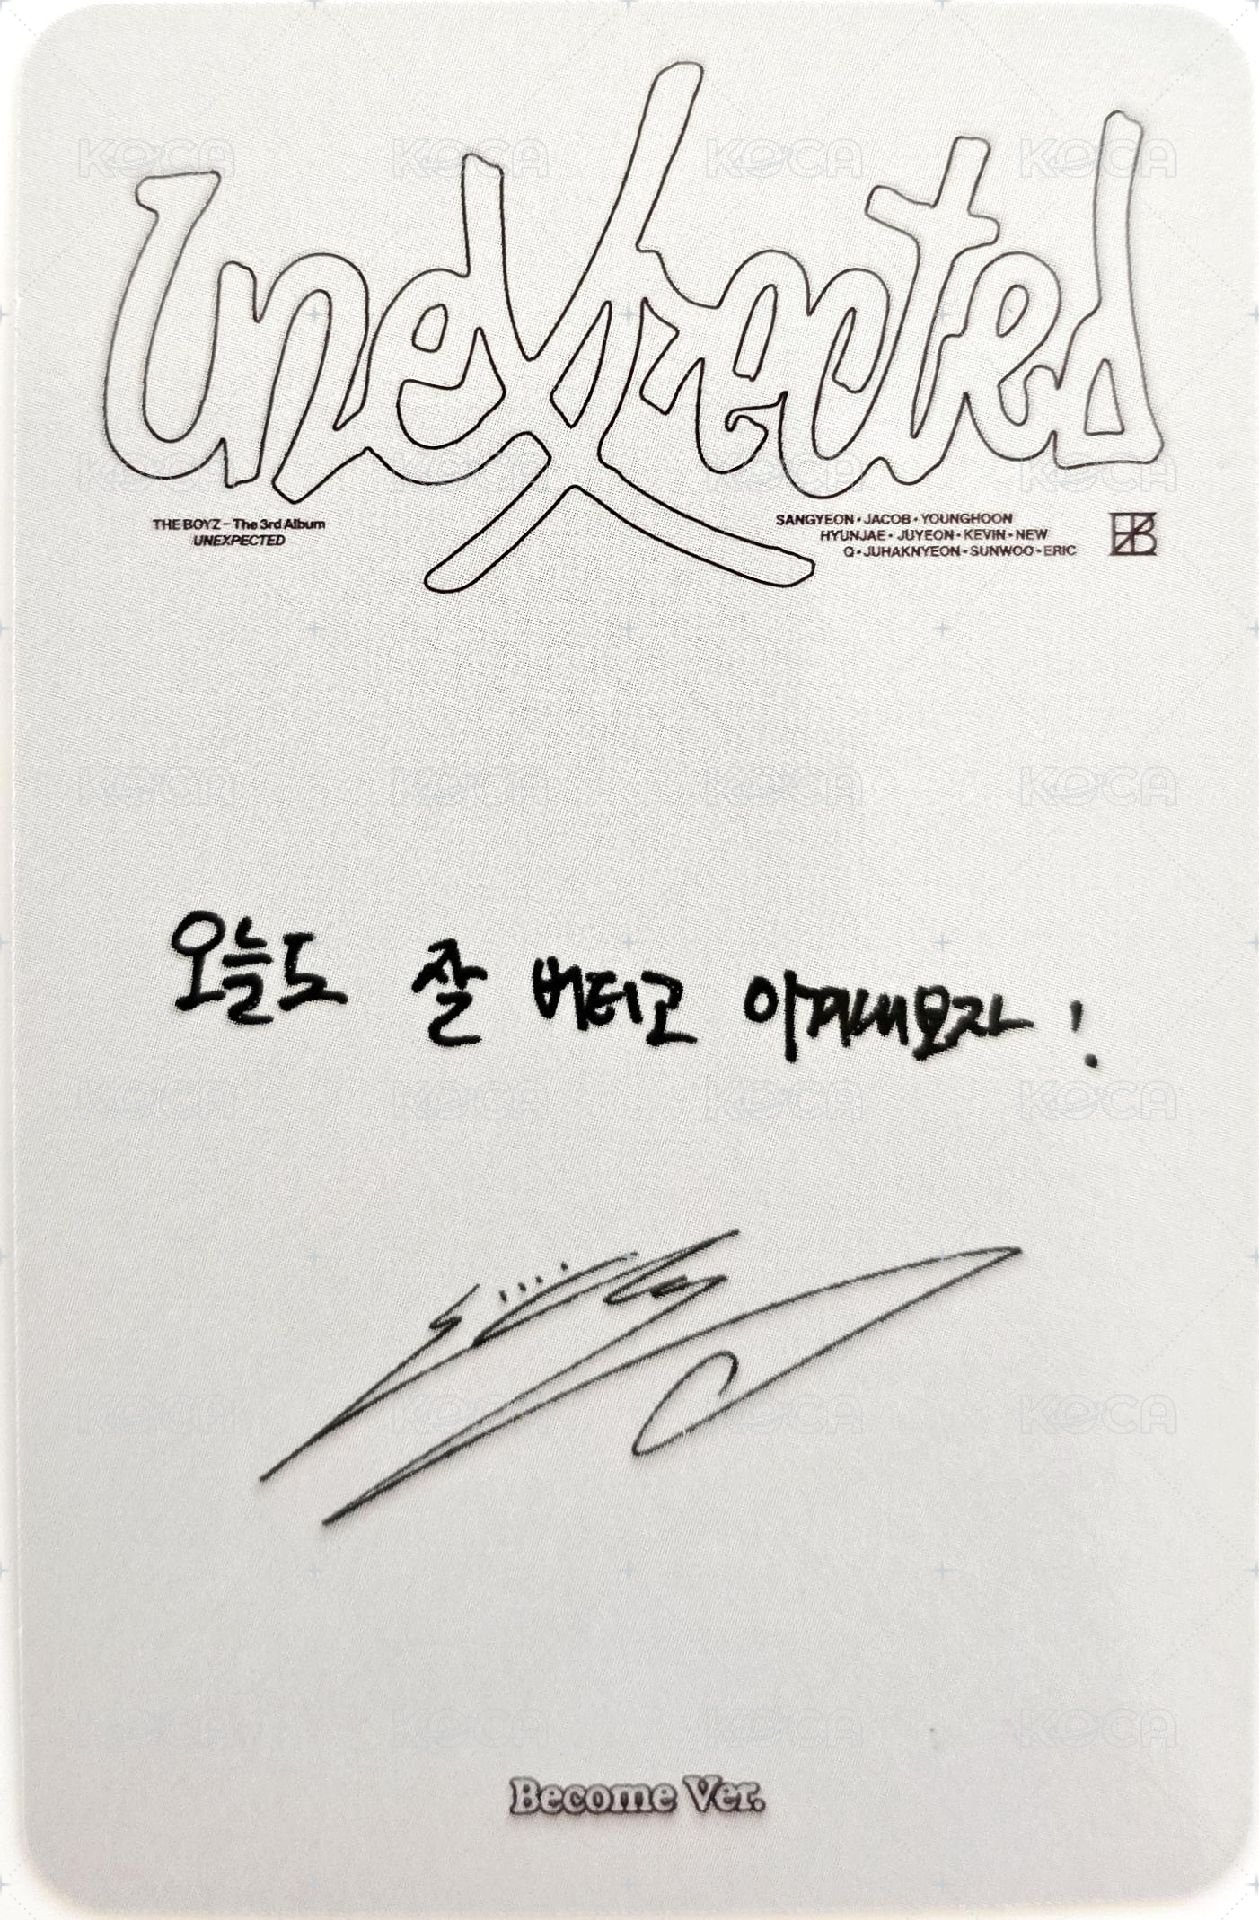 Unexpected
THE BOYZ - The 3rd Album
UNEXPECTED
SANGYEON • JACOB • YOUNGHOON
HYUNJAE • JUYEON • KEVIN • NEW
Q • JUHAKNYEON • SUNWOO • ERIC
오늘도 잘 버티고 이겨내보자!
Become Ver.
KOCA